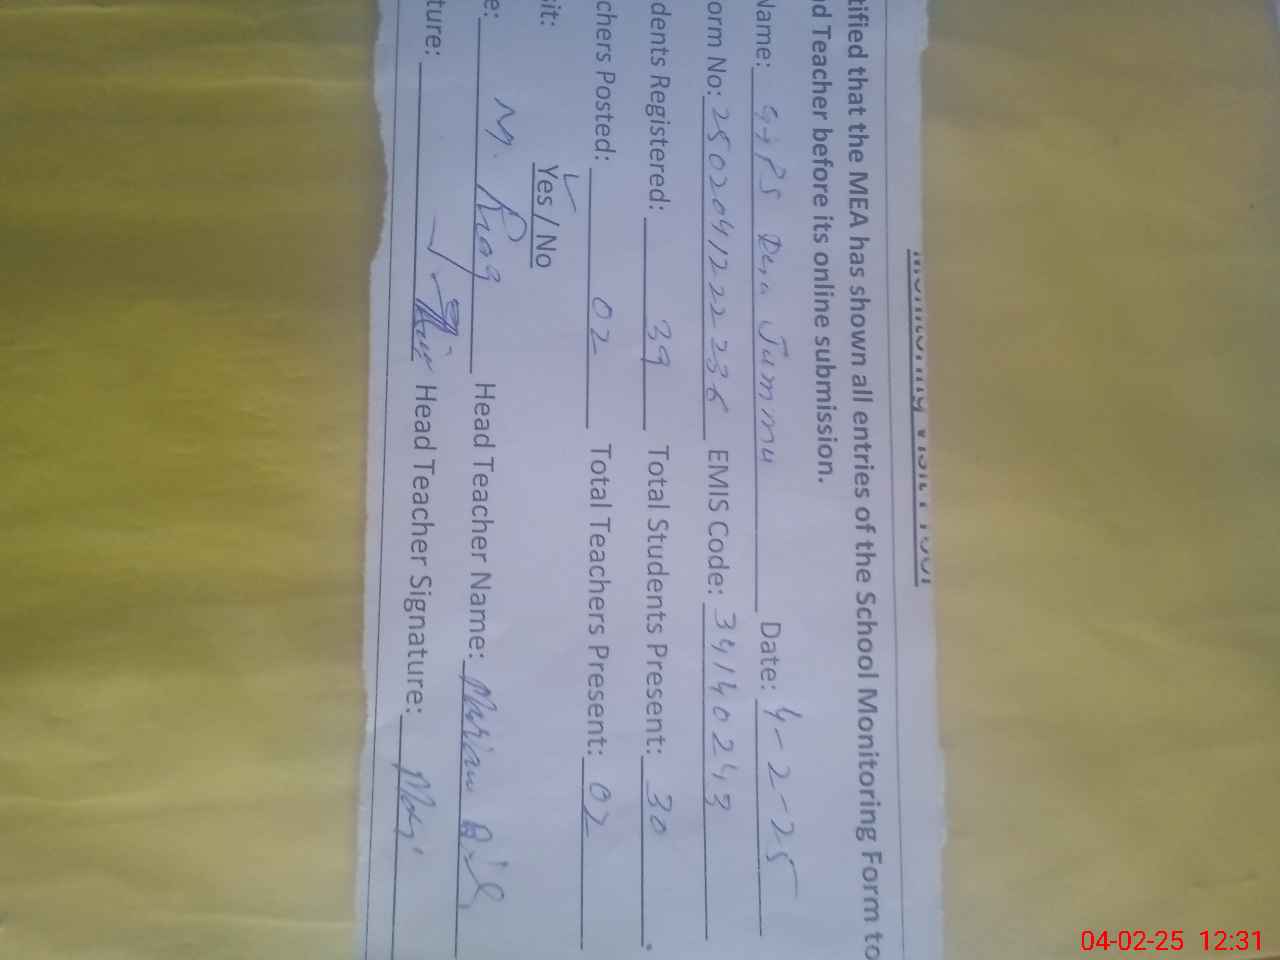 Monitoring Visit Proof
tified that the MEA has shown all entries of the School Monitoring Form to
d Teacher before its online submission.
Name: GGPS Dera Jummu Date: 4-2-25
orm No: 2502041222236 EMIS Code: 34140243
dents Registered: 39 Total Students Present: 30
chers Posted: 02 Total Teachers Present: 02
it: Yes / No
e: M. Head Teacher Name:
ture: Head Teacher Signature:
04-02-25 12:31